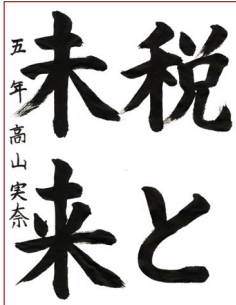 税と
未来
五年高山実奈